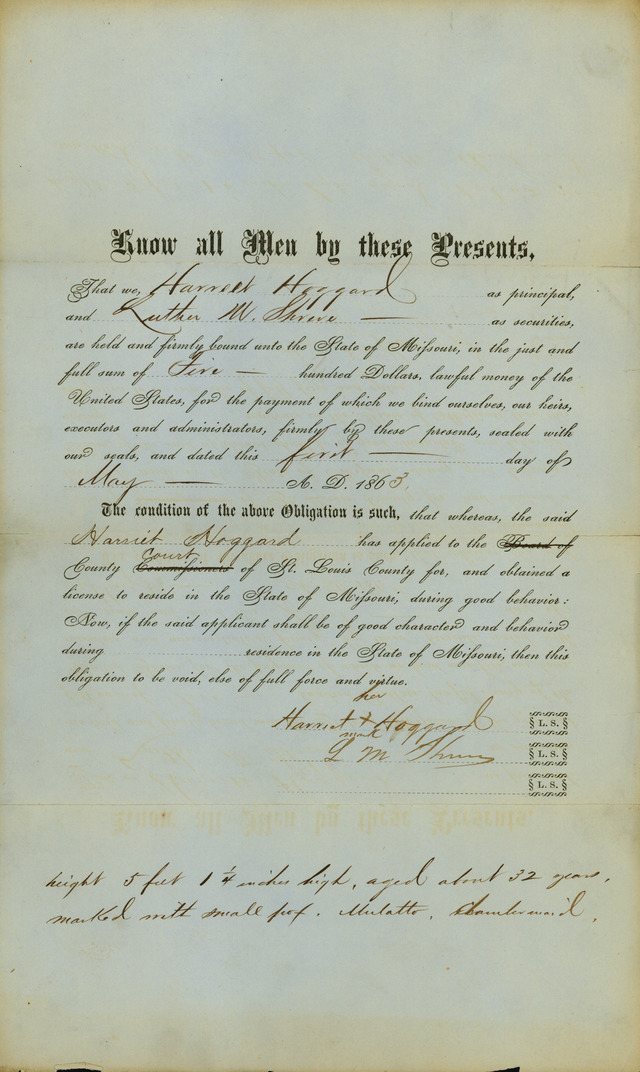 Know all Men by these Presents,
That we, Harriet Hoggard as principal,
and Luther M. Shreve — as securities,
are held and firmly bound unto the State of Missouri, in the just and
full sum of Five — hundred Dollars, lawful money of the
United States, for the payment of which we bind ourselves, our heirs,
executors and administrators, firmly by these presents, sealed with
our seals, and dated this first — day of
May — A. D. 1863.
The condition of the above Obligation is such, that whereas, the said
Harriet Hoggard has applied to the Board of
Court
County Commissioners of St. Louis County for, and obtained a
license to reside in the State of Missouri, during good behavior:
Now, if the said applicant shall be of good character and behavior
during residence in the State of Missouri, then this
obligation to be void, else of full force and virtue.
her
Harriet + Hoggard L. S.
mark
L M Shreve L. S.
L. S.
height 5 feet 1 1/4 inches high, aged about 32 years,
marked with small pox. Mulatto, chambermaid.